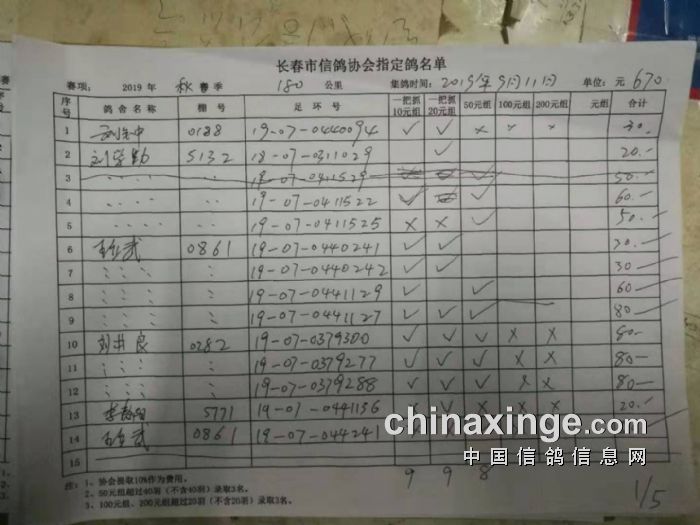 长春市信鸽协会指定鸽名单
赛项： 2019 年 秋 春季 180 公里 集鸽时间： 2019年9月11日 单位：元 670
序号 鸽舍名称 棚号 足环号 一把抓10元组 一把抓20元组 50元组 100元组 200元组 元组 合计
1 0188 19-07-0440094 ✓ ✓ × × × 30.
2 5132 18-07-0311029 ✓ 20.-
3 〃 〃 18-07-0411529 ✓ 50.-
4 〃 19-07-0411522 ✓ ✓ 60.-
5 〃 19-07-0411525 × × ✓ 50.-
6 0861 19-07-0440241 ✓ ✓ 30.-
7 〃 〃 19-07-0440242 ✓ ✓ 30
8 〃 〃 19-07-0441129 ✓ ✓ 60
9 〃 〃 19-07-0441127 ✓ ✓ ✓ 80-
10 0282 19-07-0379300 ✓ ✓ ✓ × × 80-
11 〃 〃 19-07-0379277 ✓ ✓ ✓ × × 80-
12 〃 〃 19-07-0379288 ✓ ✓ ✓ × × 80-
13 5771 19-07-0441156 × × × × 20.-
14 0861 19-07-044241
15
注：1、协会提取10%作为费用。
2、50元组超过40羽（不含40羽）录取3名。
3、100元组、200元组超过20羽（不含20羽）录取3名。
9 9 8 1/5
chinaxinge.com
中国信鸽信息网